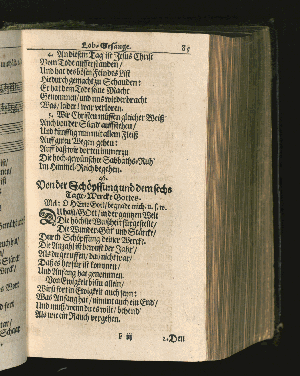 Lob- Gesänge. 85
4. An diesem Tag ist Jesus Christ
Vom Tode aufferstanden/
Und hat des bösen Feindes List
Hiedurch gemacht zu Schanden:
Er hat dem Tode seine Macht
Genommen/ und uns wiederbracht
Was/ war verloren.
5. Wir Christen müssen gleicher Weiß
Auch von der Sünd aufferstehen/
Und künfftig nun mit allem Fleiß
Auff guten Wegen gehen:
Auff daß wir dorten immerzu
Die hochgewünschte Sabbaths-Ruh'
Im Himmel-Reich begehen.
46.
Von der Schöpffung und dem sechs
Tage-Wercke Gottes.
Mel: O HErre Gott/ begnade mich/ u. s. w.
DU hast/ GOtt/ in der gantzen Welt
Die höchste Weißheit fürgestellt/
Die Wunder-Güt' und Stärcke/
Durch Schöpffung deiner Werck'.
Die Anzahl ist bewust der Jahr'/
Als du geruffen/ da nicht war/
Daß es herfür ist kommen/
Und Anfang hat genommen.
Von Ewigkeit bistu allein/
Wirst fort in Ewigkeit auch seyn:
Was Anfang hat/ nimmt auch ein End/
Und muß/ wenn du es wilt/ behend/
Als wie ein Rauch vergehen.
F iij 2. Den